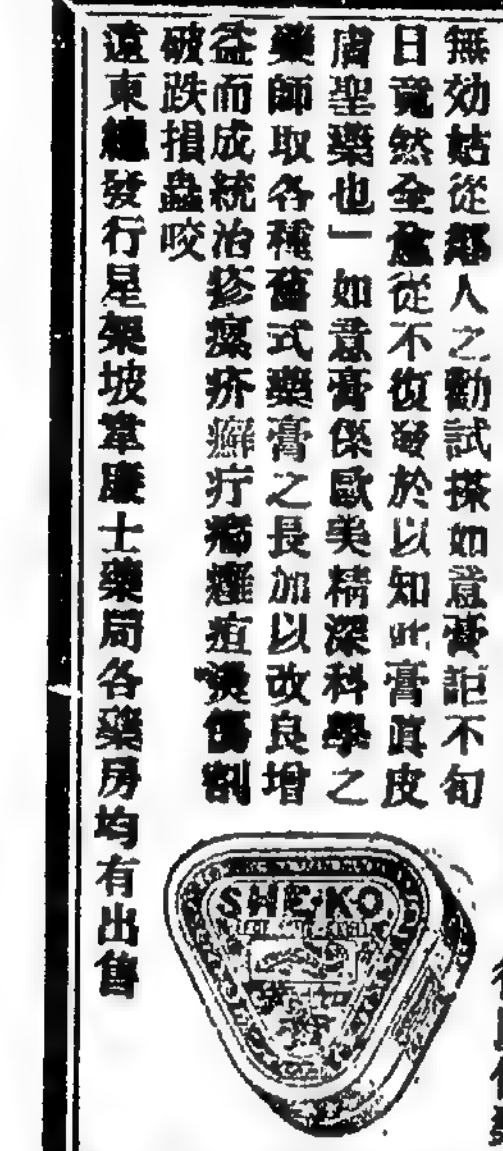 無効姑從鄰人之勸試搽如意膏詎不旬
日竟然全愈從不復發於以知此膏眞皮
膚聖藥也」如意膏係歐美精深科學之
藥師取各種舊式藥膏之長加以改良增
益而成統治疹瘰疥癬疔瘤癰疽燙傷割
破跌損蟲咬
遠東總發行星架坡韋廉士藥局各藥房均有出售
SHE-KO